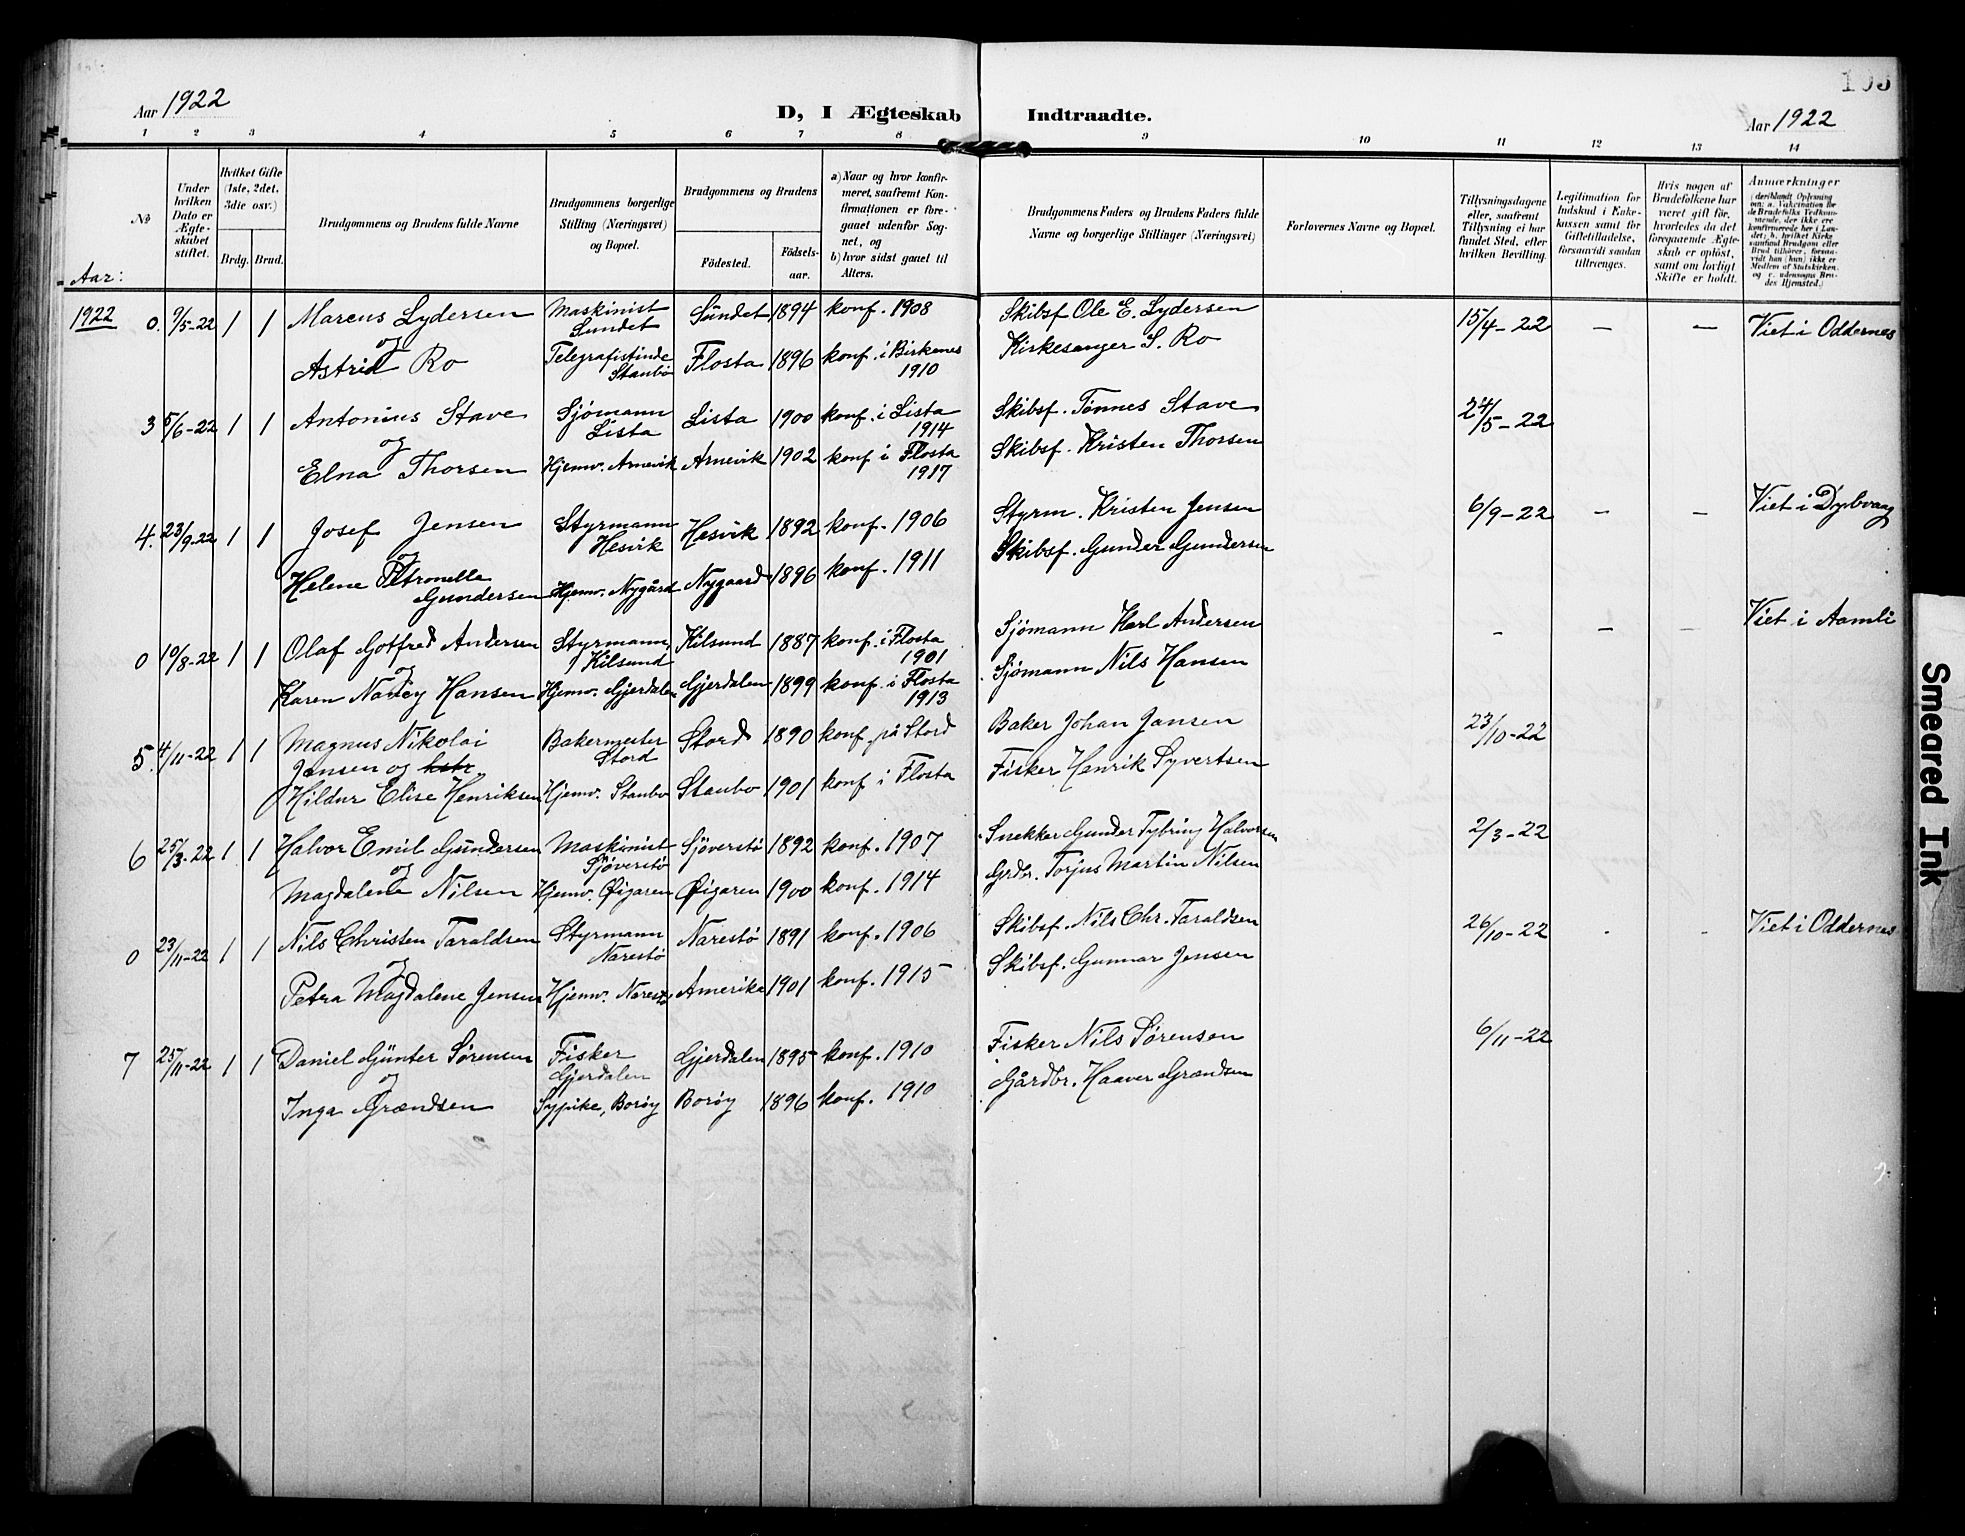 Aar 1922
D, I Ægteskab Indtraadte.
Aar 1922
1 2 3 4 5 6 7 8 9 10 11 12 13 14
No
Under hvilken Dato er Ægteskabet stiftet.
Hvilket Gifte (1ste, 2det, 3die osv.)
Brdg. Brud.
Brudgommens og Brudens fulde Navne
Brudgommens borgerlige Stilling (Næringsvei) og Bopæl.
Brudgommens og Brudens
Födested.
Födselsaar.
a) Naar og hvor konfirmeret, saafremt Konfirmationen er foregaaet udenfor Sognet, og
b) hvor sidst gaaet til Alters.
Brudgommens Faders og Brudens Faders fulde Navne og borgerlige Stillinger (Næringsvei)
Forlovernes Navne og Bopæl.
Tillysningsdagene eller, saafremt Tillysning ei har fundet Sted, efter hvilken Bevilling.
Legitimation for Indskud i Enkekassen samt for Giftetilladelse, forsaavidt saadan tiltrænges.
Hvis nogen af Brudefolkene har været gift för, hvorledes da det foregaaende Ægteskab er oplöst, samt om lovligt Skifte er holdt.
Anmærkninger
Aar:
1922 0. 9/5-22 1 1 Marcus Lydersen Maskinist Sundet Sundet 1894 konf. 1908 Skibsf Ole E. Lydersen 15/4-22 — — Viet i Oddernes
og
Astrid Ro Telegrafistinde Staubö Flosta 1896 konf. i Birkenes 1910 Kirkesanger S. Ro
3 5/6-22 1 1 Antonius Stave Sjömann Lista Lista 1900 konf. i Lista 1914 Skibsf. Tönnes Stave 24/5-22
og
Elna Thorsen Hjemv. Arnevik Arnevik 1902 konf i Flosta 1917 Skibsf. Kristen Thorsen
4. 23/9-22 1 1 Josef Jensen Styrmann Hesvik Hesvik 1892 konf. 1906 Styrm. Kristen Jensen 6/9-22 — — Viet i Dybvaag
og
Helene Petronelle Gundersen Hjemv. Nygård Nygaard 1896 konf. 1911 Skibsf. Gunder Gundersen
0 10/8-22 1 1 Olaf Gotfred Andersen Styrmann, Kilsund Kilsund 1887 konf. i Flosta 1901 Sjömann Karl Andersen - — — Viet i Aamli
og
Karen Nancy Hansen Hjemv. Gjerdalen Gjerdalen 1899 konf. i Flosta 1913 Sjömann Nils Hansen
5. 4/11-22 1 1 Magnus Nikolai Bakermester Stord Stord 1890 konf. på Stord Baker Johan Jansen 23/10-22
Jansen og
Hildur Elise Henriksen Hjemv. Staubo Staubo 1901 konf i Flosta Fisker Henrik Syvertsen
6 25/3-22 1 1 Halvor Emil Gundersen Maskinist Sjöverstö Sjöverstö 1892 konf. 1907 Snekker Gunder Tybring Halvorsen 2/3-22
og
Magdalene Nilsen Hjemv. Øigaren Øigaren 1900 konf. 1914 Grdbr. Torjus Martin Nilsen
0 23/11-22 1 1 Nils Christen Taraldsen Styrmann Narestö Narestö 1891 konf. 1906 Skibsf. Nils Chr. Taraldsen 26/10-22 Viet i Oddernes
og
Petra Magdalene Jensen Hjemv. Narestö Amerika 1901 konf. 1915 Skibsf. Gunnar Jensen
7 25/11-22 1 1 Daniel Günter Sørensen Fisker Gjerdalen Gjerdalen 1895 konf. 1910 Fisker Nils Sørenson 6/11-22
og
Inga Grændsen Sypike, Borøy Borøy 1896 konf. 1910 Gårdbr. Haaver Grændsen
Smeared Ink